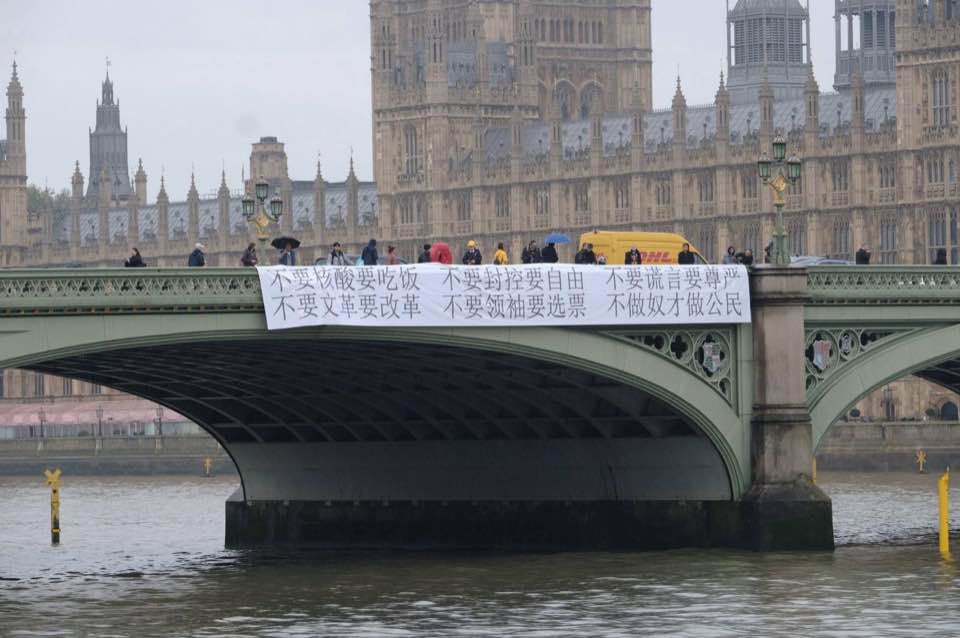 DHL
不要核酸要吃饭 不要封控要自由 不要谎言要尊严
不要文革要改革 不要领袖要选票 不做奴才做公民